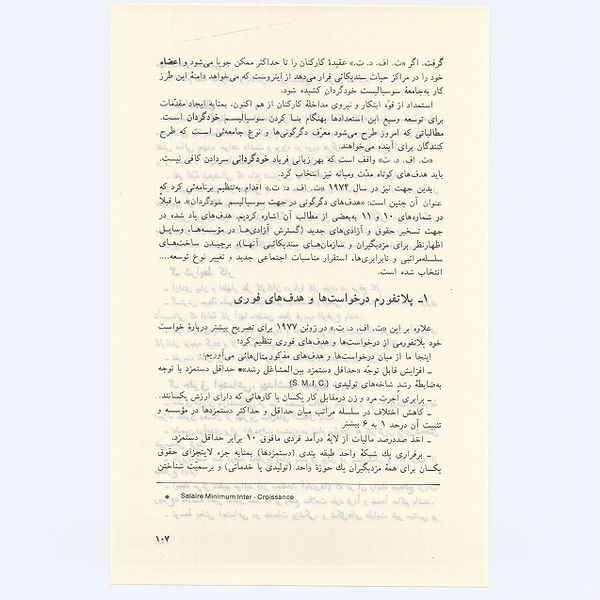 گرفت. اگر «ث. اف. د. ت.» عقیدهٔ کارکنان را تا حداکثر ممکن جویا می‌شود و اعضاء
خود را در مراکز حیات سندیکائی قرار می‌دهد از اینروست که می‌خواهد دامنهٔ این طرز
کار به‌جامعهٔ سوسیالیست خودگردان کشیده شود.
استمداد از قوّه ابتکار و نیروی مداخلهٔ کارکنان از هم اکنون، بمثابه ایجاد مقدّمات
برای توسعه وسیع این استعدادها بهنگام بنا کردن سوسیالیسم خودگردان است.
مطالباتی که امروز طرح می‌شود معرّف دگرگونی‌ها و نوع جامعه‌ئی است که طرح
کنندگان برای آینده می‌خواهند.
«ث. اف. د. ت» واقف است که بهر زبانی فریاد خودگردانی سردادن کافی نیست.
باید هدف‌های کوتاه مدّت ومیانه نیز انتخاب کرد.
بدین جهت نیز در سال ۱۹۷۴ «ث. اف. د. ت.» اقدام به‌تنظیم برنامه‌ئی کرد که
عنوان آن چنین است: «هدف‌های دگرگونی در جهت سوسیالیسم خودگردان». ما قبلاً
در شماره‌های ۱۰ و ۱۱ به‌بعضی از مطالب آن اشاره کردیم. هدف‌های یاد شده در
جهت تسخیر حقوق و آزادی‌های جدید (گسترش آزادی‌ها در مؤسسه‌ها، وسایل
اظهارنظر برای مزدبگیران و سازمان‌های سندیکائی آنها)، برچیدن ساخت‌های
سلسله‌مراتبی و نابرابری‌ها، استقرار مناسبات اجتماعی جدید و تغییر نوع توسعه....
انتخاب شده است.
۱- پلاتفورم درخواست‌ها و هدف‌های فوری
علاوه بر این «ث. اف. د. ت.» در ژوئن ۱۹۷۷ برای تصریح بیشتر دربارهٔ خواست
خود پلاتفورمی از درخواست‌ها و هدف‌های فوری تنظیم کرد:
اینجا ما از میان درخواست‌ها و هدف‌های مذکور مثال‌هائی می‌آوریم:
ـ افزایش قابل توجّه «حداقل دستمزد بین‌المشاغل رشد»* حداقل دستمزد با توجه
به‌ضابطهٔ رشد شاخه‌های تولیدی. (S.M.I.C.)
ـ برابری اُجرت مرد و زن درمقابل کار یکسان یا کارهائی که دارای ارزش یکسانند.
ـ کاهش اختلاف در سلسله مراتب میان حداقل و حداکثر دستمزدها در مؤسسه و
تثبیت آن درحد ۱ به ۶ بیشتر
ـ اخذ صددرصد مالیات از لایهٔ درآمد فردی مافوق ۱۰ برابر حداقل دستمزد.
ـ برقراری یك شبکهٔ واحد طبقه بندی (دستمزدها) بمثابه جزء لایتجزای حقوق
یکسان برای همهٔ مزدبگیران یك حوزهٔ واحد (تولیدی یا خدماتی) و برسمیّت شناختن
* Salaire Minimum Inter - Croissance
۱۰۷